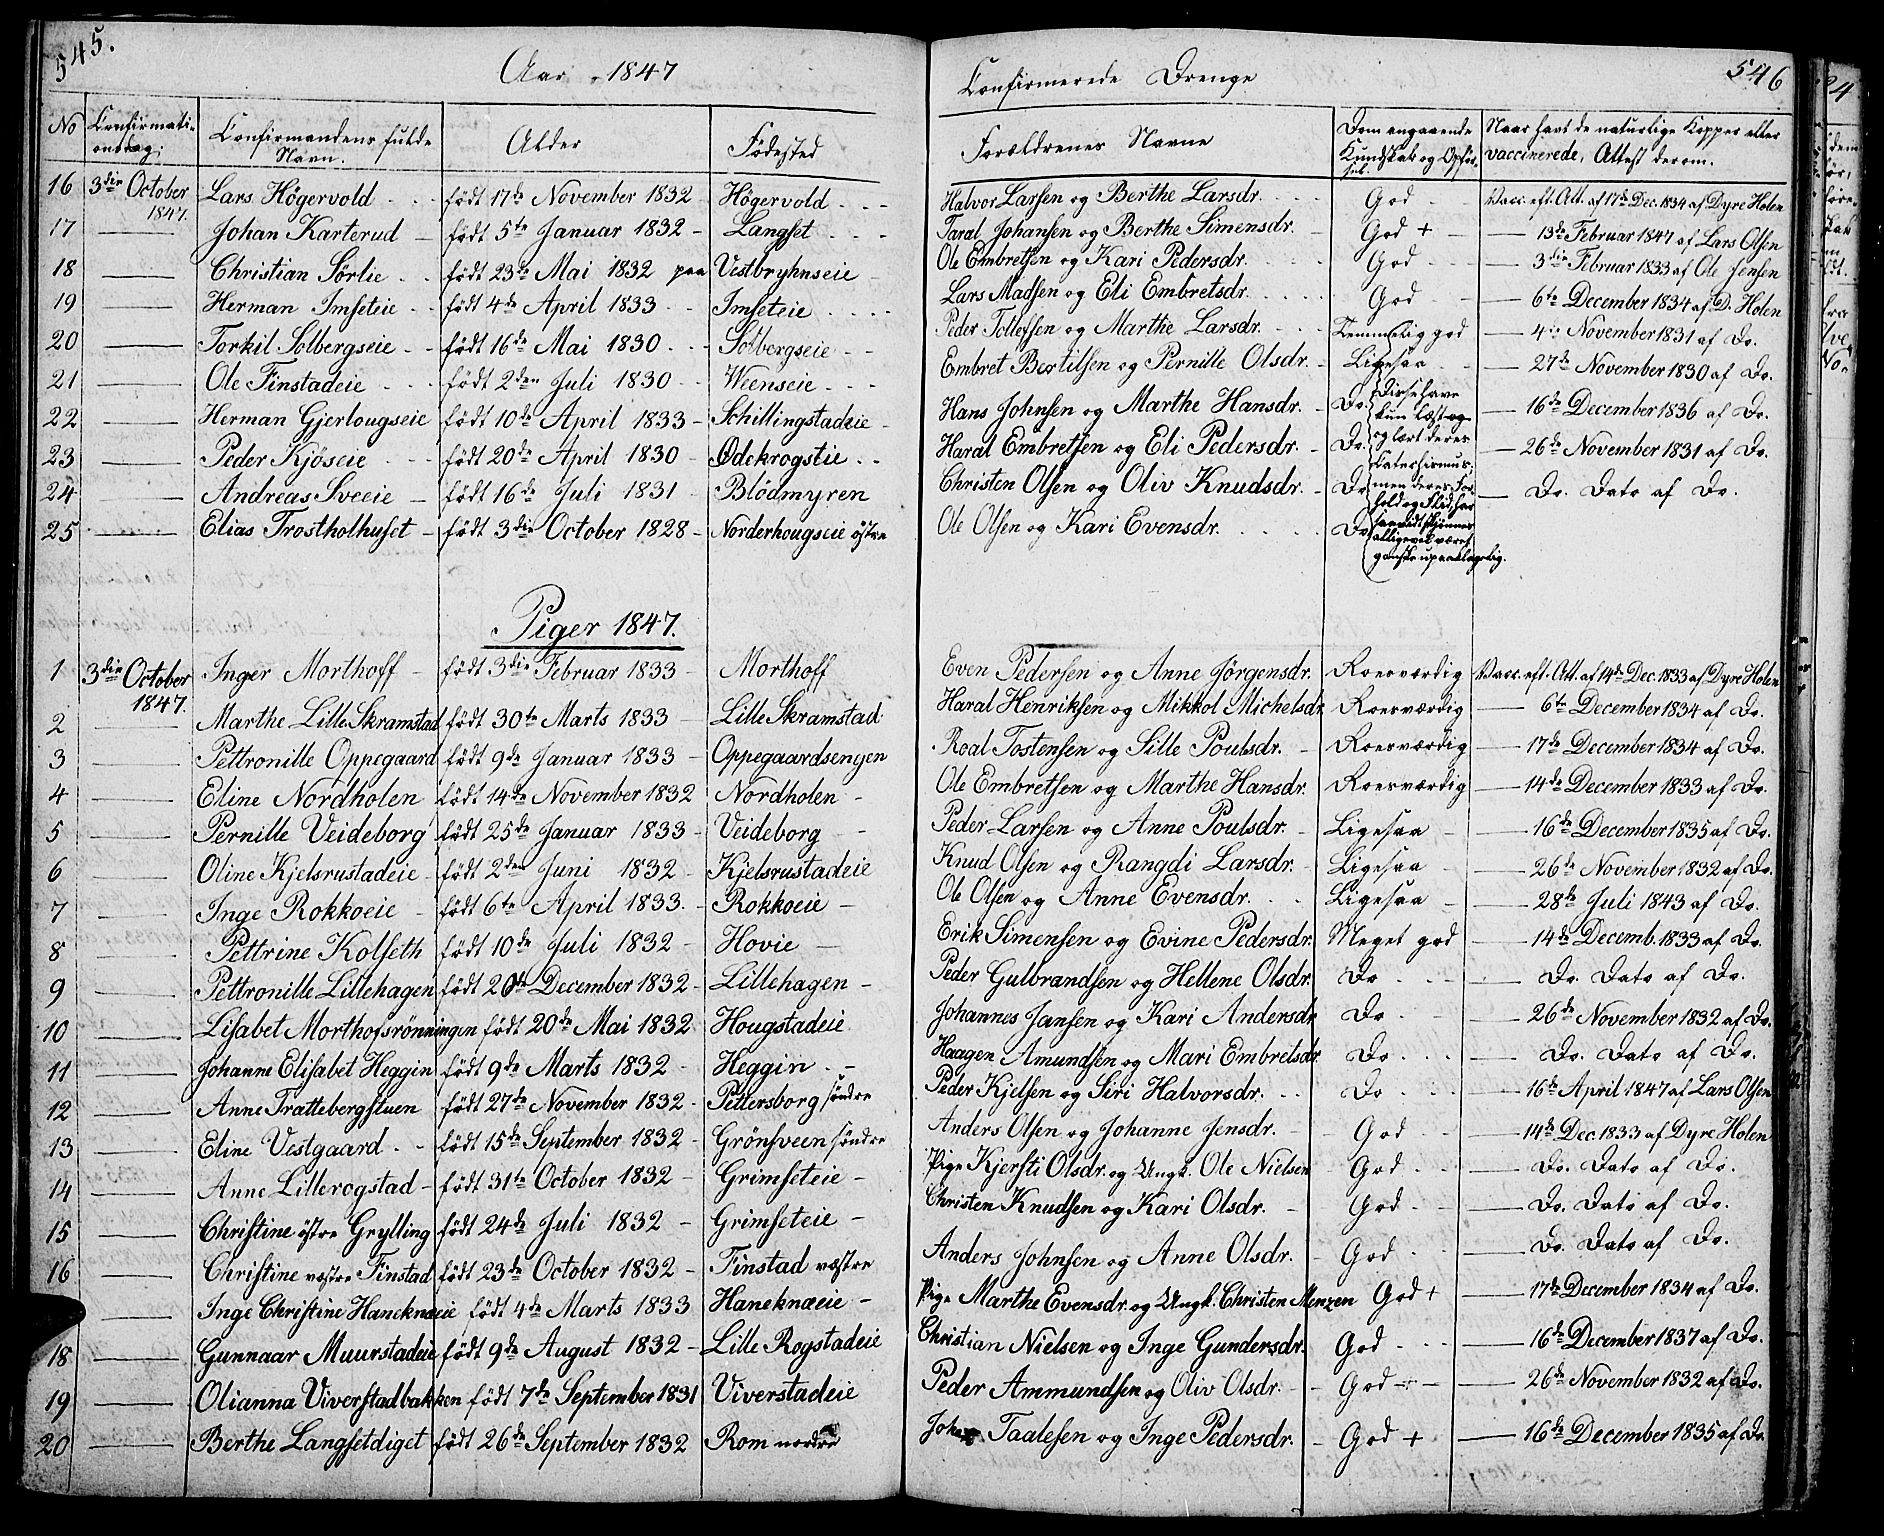 545.
Aar 1847
Confirmerede Drenge
546
No Confirmati- Confirmandens fulde Alder Födested Forældrenes Navne Dom angaaende Naar havt de naturlige Kopper eller
onsdag; Navn. Kundskab og Opför- vaccinerede, Attest derom.
sel.
16 3die October Lars Högervold födt 17de November 1832 Högervold Halvor Larsen og Berthe Larsdr. God Vacc. eft. Att. af 17de Dec. 1834 af Dyre Holen
1847.
17 Johan Karterud födt 5te Januar 1832 Langset Taral Johansen og Berthe Simensdr. God + 13de Februar 1847 af Lars Olsen
18 Christian Sörlie födt 23de Mai 1832 paa Vestbryhnseie Ole Embretsen og Kari Pedersdr. God 3die Februar 1833 af Ole Jensen
19 Herman Imseteie födt 4de April 1833 Imseteie Lars Madsen og Eli Embretsdr. God 6te December 1834 af D. Holen
20 Torkil Solbergseie födt 16de Mai 1830 Solbergseie Peder Tollefsen og Marthe Larsdr. Temmelig god 4de November 1831 af Do.
21 Ole Finstadeie födt 2den Juli 1830 Weenseie Embret Bertilsen og Pernille Olsdr. Ligesaa 27de November 1830 af Do.
22 Herman Gjerlougseie födt 10de April 1833 Schillingstadeie Hans Johnsen og Marthe Hansdr. Do 16de December 1836 af Do.
23 Peder Kjöseie födt 20de April 1830 Ödekrogstie Haral Embretsen og Eli Pedersdr. Do 26de November 1831 af Do.
24 Andreas Sveeie födt 16de Juli 1831 Blödmyren Christen Olsen og Oliv Knudsdr. Do Do. Dato af Do.
25 Elias Trostholhuset födt 3die October 1828 Norderhougseie östre Ole Olsen og Kari Evensdr. Do
Disse have
kun læst og
og lært deres
Katechismus,
men deres For-
hold og Flid har
saavidt skjönnes
alligevel været
ganske upaaklagelig.
Piger 1847.
1 3die October Inger Morthoff födt 3die Februar 1833 Morthoff Even Pedersen og Anne Jörgensdr. Roesværdig Vacc. eft. Att. af 14de Dec. 1833 af Dyre Holen
1847.
2 Marthe Lille Skramstad födt 30te Marts 1833 Lille Skramstad Haral Henriksen og Mikkol Michelsdr. Roesværdig 6te December 1834 af Do.
3 Pettronille Oppegaard födt 9de Januar 1833 Oppegaardsengen Roal Tostensen og Sille Poulsdr. Roesværdig 17de December 1834 af Do.
4 Eline Nordholen födt 14de November 1832 Nordholen Ole Embretsen og Marthe Hansdr. Roesværdig 14de December 1833 af Do.
5 Pernille Veideborg födt 25de Januar 1833 Veideborg Peder Larsen og Anne Poulsdr. Ligesaa 16de December 1835 af Do.
6 Oline Kjelsrustadeie födt 2den Juni 1832 Kjelsrustadeie Knud Olsen og Rangdi Larsdr. Ligesaa 26de November 1832 af Do.
7 Inge Rokkoeie födt 6te April 1833. Rokkoeie Ole Olsen og Anne Evensdr. Ligesaa 28de Juli 1843 af Do.
8 Pettrine Kolseth födt 10de Juli 1832 Hovie Erik Simensen og Evine Pedersdr. Meget god 14de Decemb. 1833 af Do.
9 Pettronille Lillehagen födt 20de December 1832 Lillehagen Peder Gulbrandsen og Hellene Olsdr. Do Do. Dato af Do.
10 Lisabet Morthofsrönningen födt 20de Mai 1832 Hougstadeie Johannes Jansen og Kari Andersdr. Do 26de November 1832 af Do.
11 Johanne Elisabet Heggin födt 9de Marts 1832 Heggin Haagen Amundsen og Mari Embretsdr. Do Do. Dato af Do.
12 Anne Trattebergstuen födt 27de November 1832 Pettersborg söndre Peder Kjelsen og Siri Halvorsdr. Do 16de April 1847 af Lars Olsen
13 Eline Vestgaard födt 15de September 1832 Grönsveen söndre Anders Olsen og Johanne Jensdr. God 14de Dec. 1833 af Dyre Holen
14 Anne Lillerogstad födt 31te October 1832 Grimseteie Pige Kjersti Olsdr. og Ungk. Ole Nielsen God Do. Dato af Do.
15 Christine östre Grylling födt 24de Juli 1832 Grimseteie Christen Knudsen og Kari Olsdr. God Do. Dato af Do.
16 Christine vestre Finstad födt 23de October 1832 Finstad vestre Anders Johnsen og Anne Olsdr. God Do. Dato af Do.
Inge Christine Haneknæeie födt 4de Marts 1833 Haneknæeie Pige Marthe Evensdr. og Ungk. Christen Menzen God + 17de December 1834 af Do.
18 Gunnaar Muurstadeie födt 9de August 1832 Lille Rogstadeie Christian Nielsen og Inge Gundersdr. God 16de December 1837 af Do.
19 Olianna Viverstadbakken födt 7de September 1831 Viverstadeie Peder Ammundsen og Oliv Olsdr. God 26de November 1832 af Do.
20 Berthe Langsetdiget födt 26de September 1832 Rom nordre Johan Taalesen og Inge Pedersdr. God + 16de December 1835 af Do.